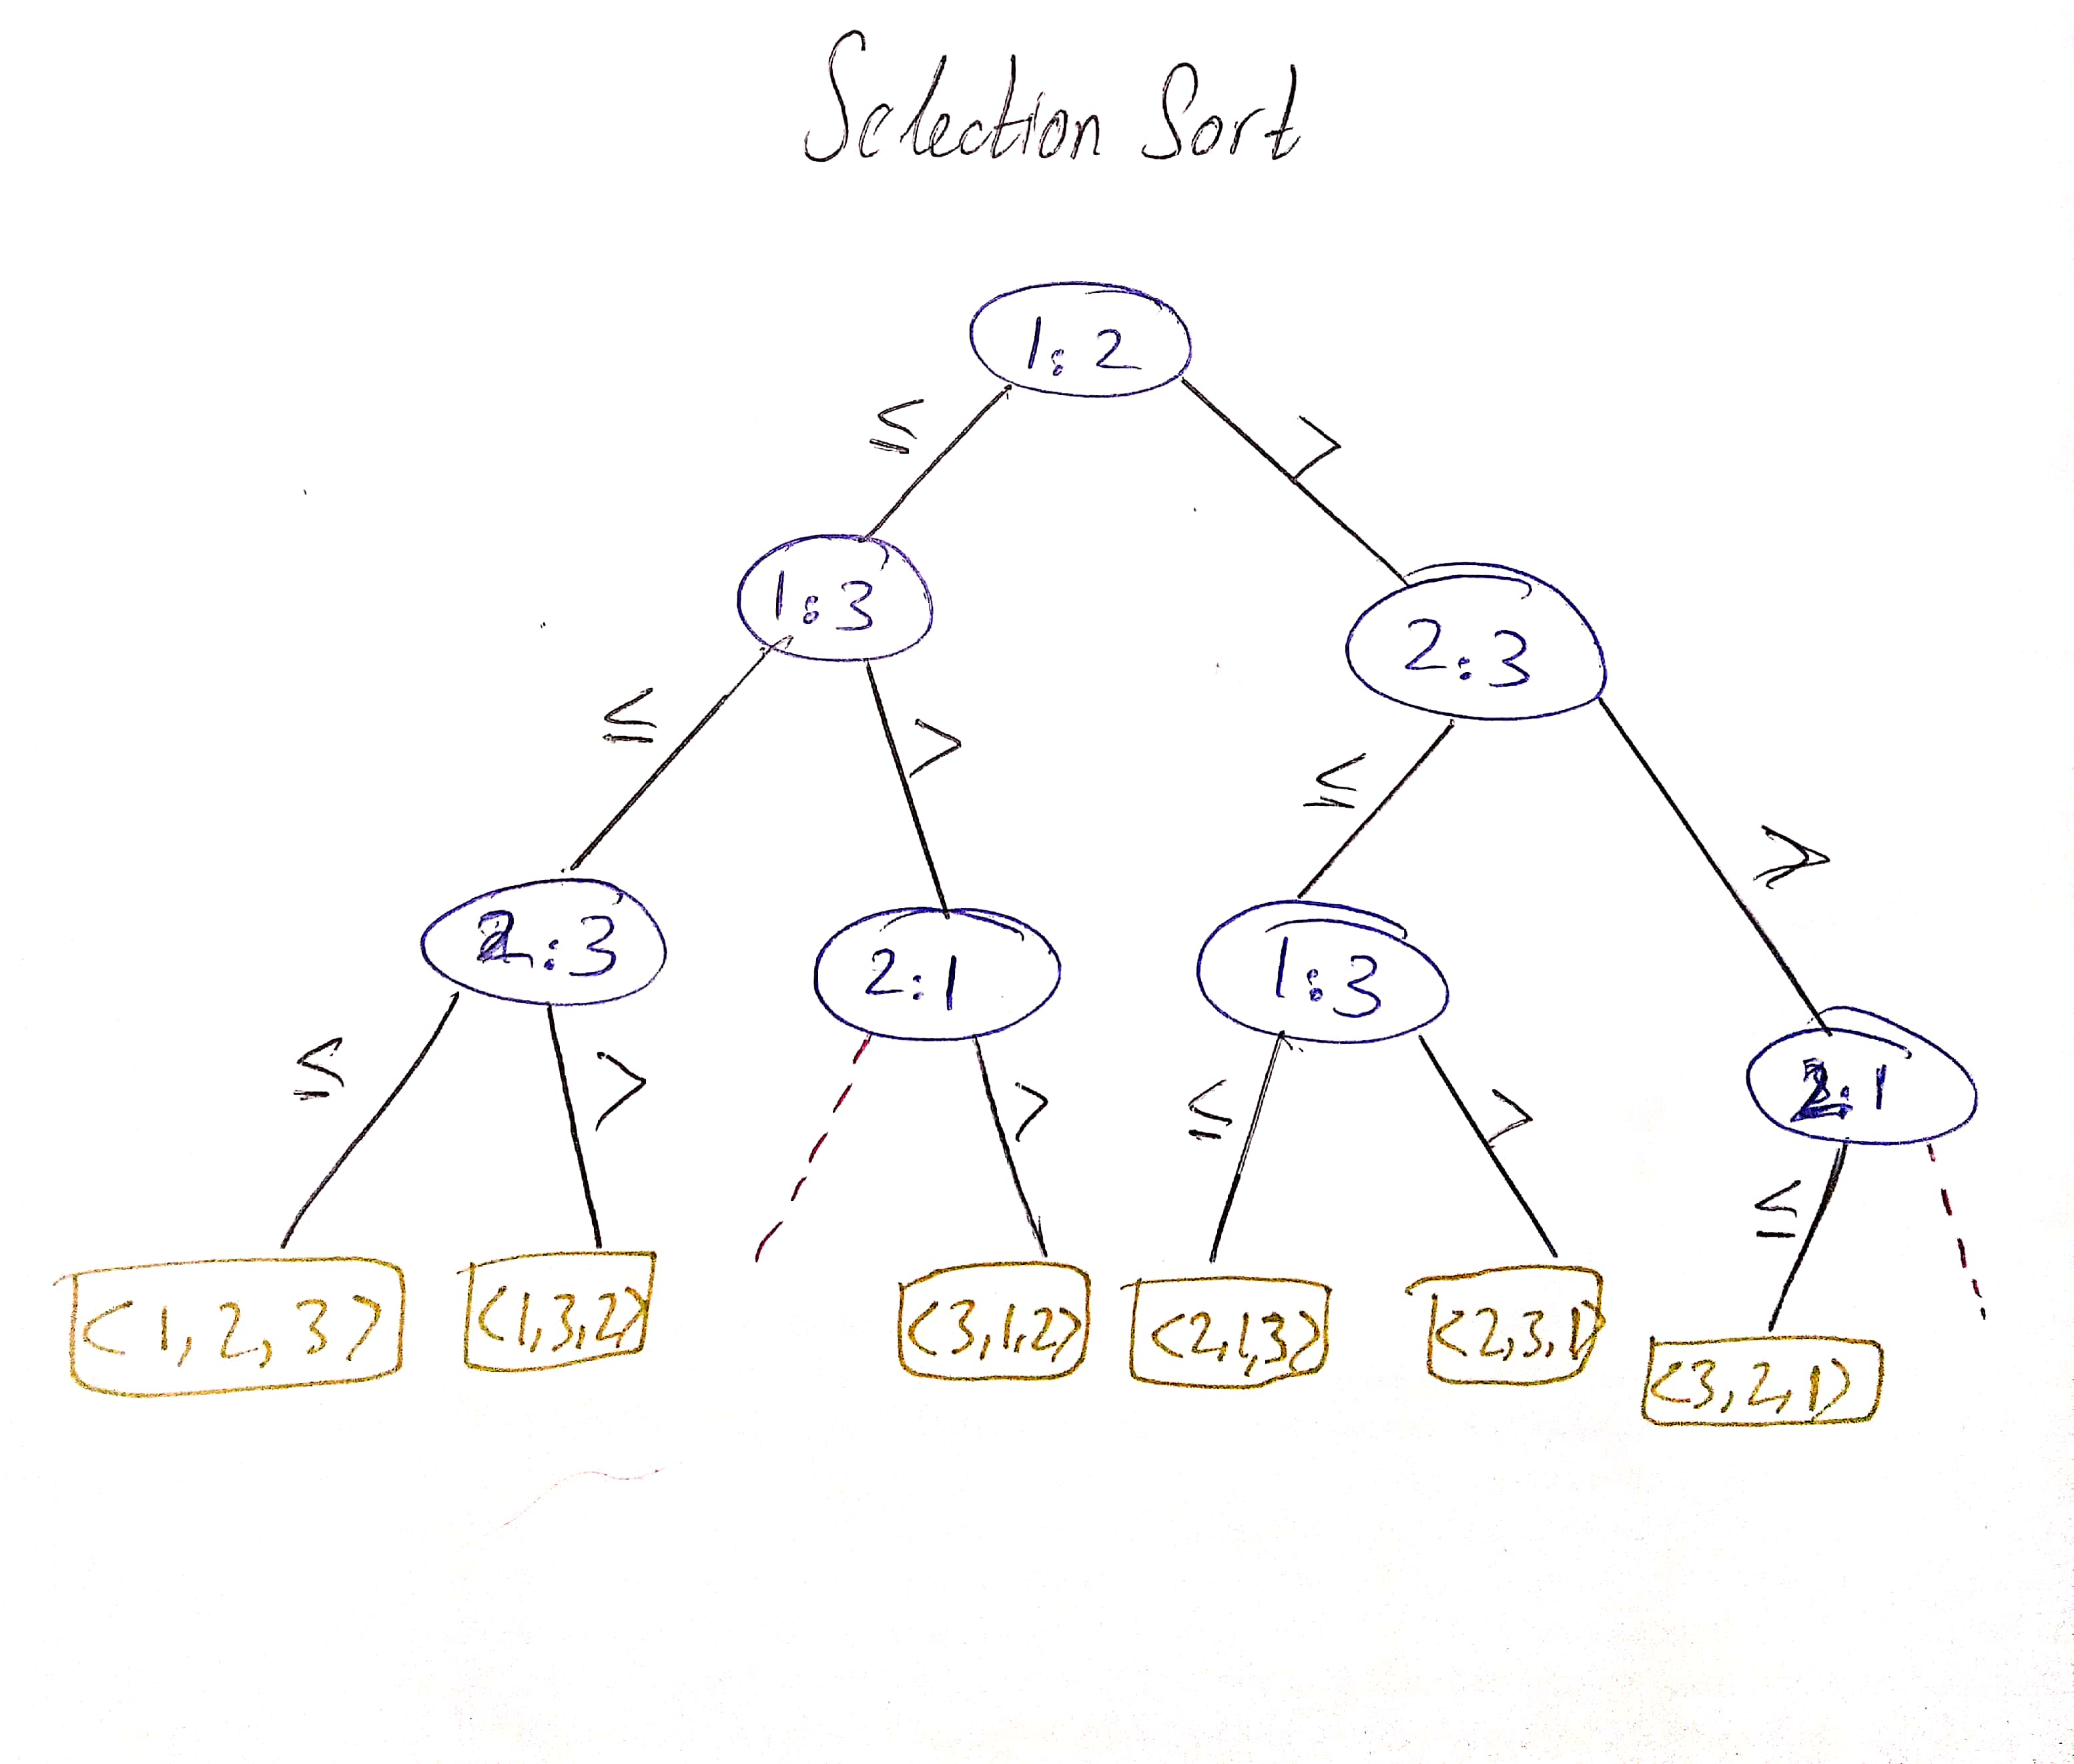 Selection Sort
1:2
≤ >
1:3 2:3
≤ > ≤ >
2:3 2:1 1:3 2:1
≤ > > ≤ > ≤
<1,2,3> <1,3,2> <3,1,2> <2,1,3> <2,3,1> <3,2,1>